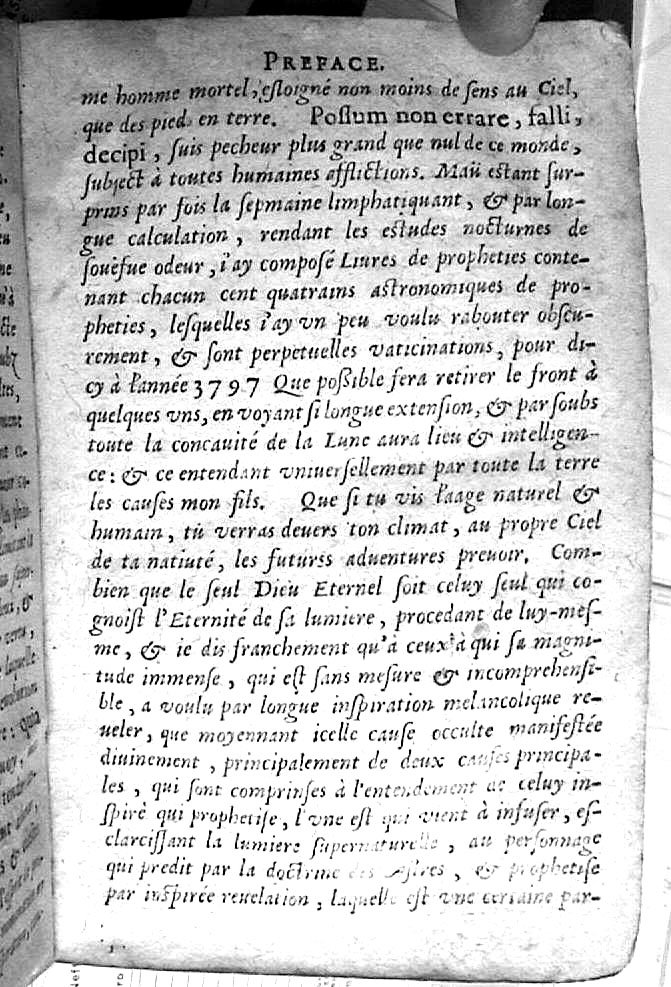 PREFACE.
me homme mortel, esloigné non moins de sens au Ciel,
que des pieds en terre. Possum non errare, falli,
decipi, suis pecheur plus grand que nul de ce monde,
subject à toutes humaines afflictions. Maü estant sur-
prins par fois la sepmaine limphatiquant, & par lon-
gue calculation, rendant les estudes nocturnes de
souëfue odeur, i'ay composé Liures de propheties conte-
nant chacun cent quatrains astronomiques de pro-
pheties, lesquelles i'ay vn peu voulu rabouter obscu-
rement, & sont perpetuelles vaticinations, pour di-
cy à l'année 3797 Que possible fera retirer le front à
quelques vns, en voyant si longue extension, & par soubs
toute la concauité de la Lune aura lieu & intelligen-
ce: & ce entendant vniuersellement par toute la terre
les causes mon fils. Que si tu vis l'aage naturel &
humain, tu verras deuers ton climat, au propre Ciel
de ta natiuté, les futures aduentures preuoir. Com-
bien que le seul Dieu Eternel soit celuy seul qui co-
gnoist l'Eternité de sa lumiere, procedant de luy-mes-
me, & ie dis franchement qu'à ceux à qui sa magni-
tude immense, qui est sans mesure & incomprehensi-
ble, a voulu par longue inspiration melancolique re-
ueler, que moyennant icelle cause occulte manifestée
diuinement, principalement de deux causes principa-
les, qui sont comprinses à l'entendement de celuy in-
spiré qui prophetise, l'vne est qui vient à infuser, es-
clarcissant la lumiere supernaturelle, au personnage
qui predit par la doctrine des Astres, & prophetise
par inspirée reuelation, laquelle est vne certaine par-